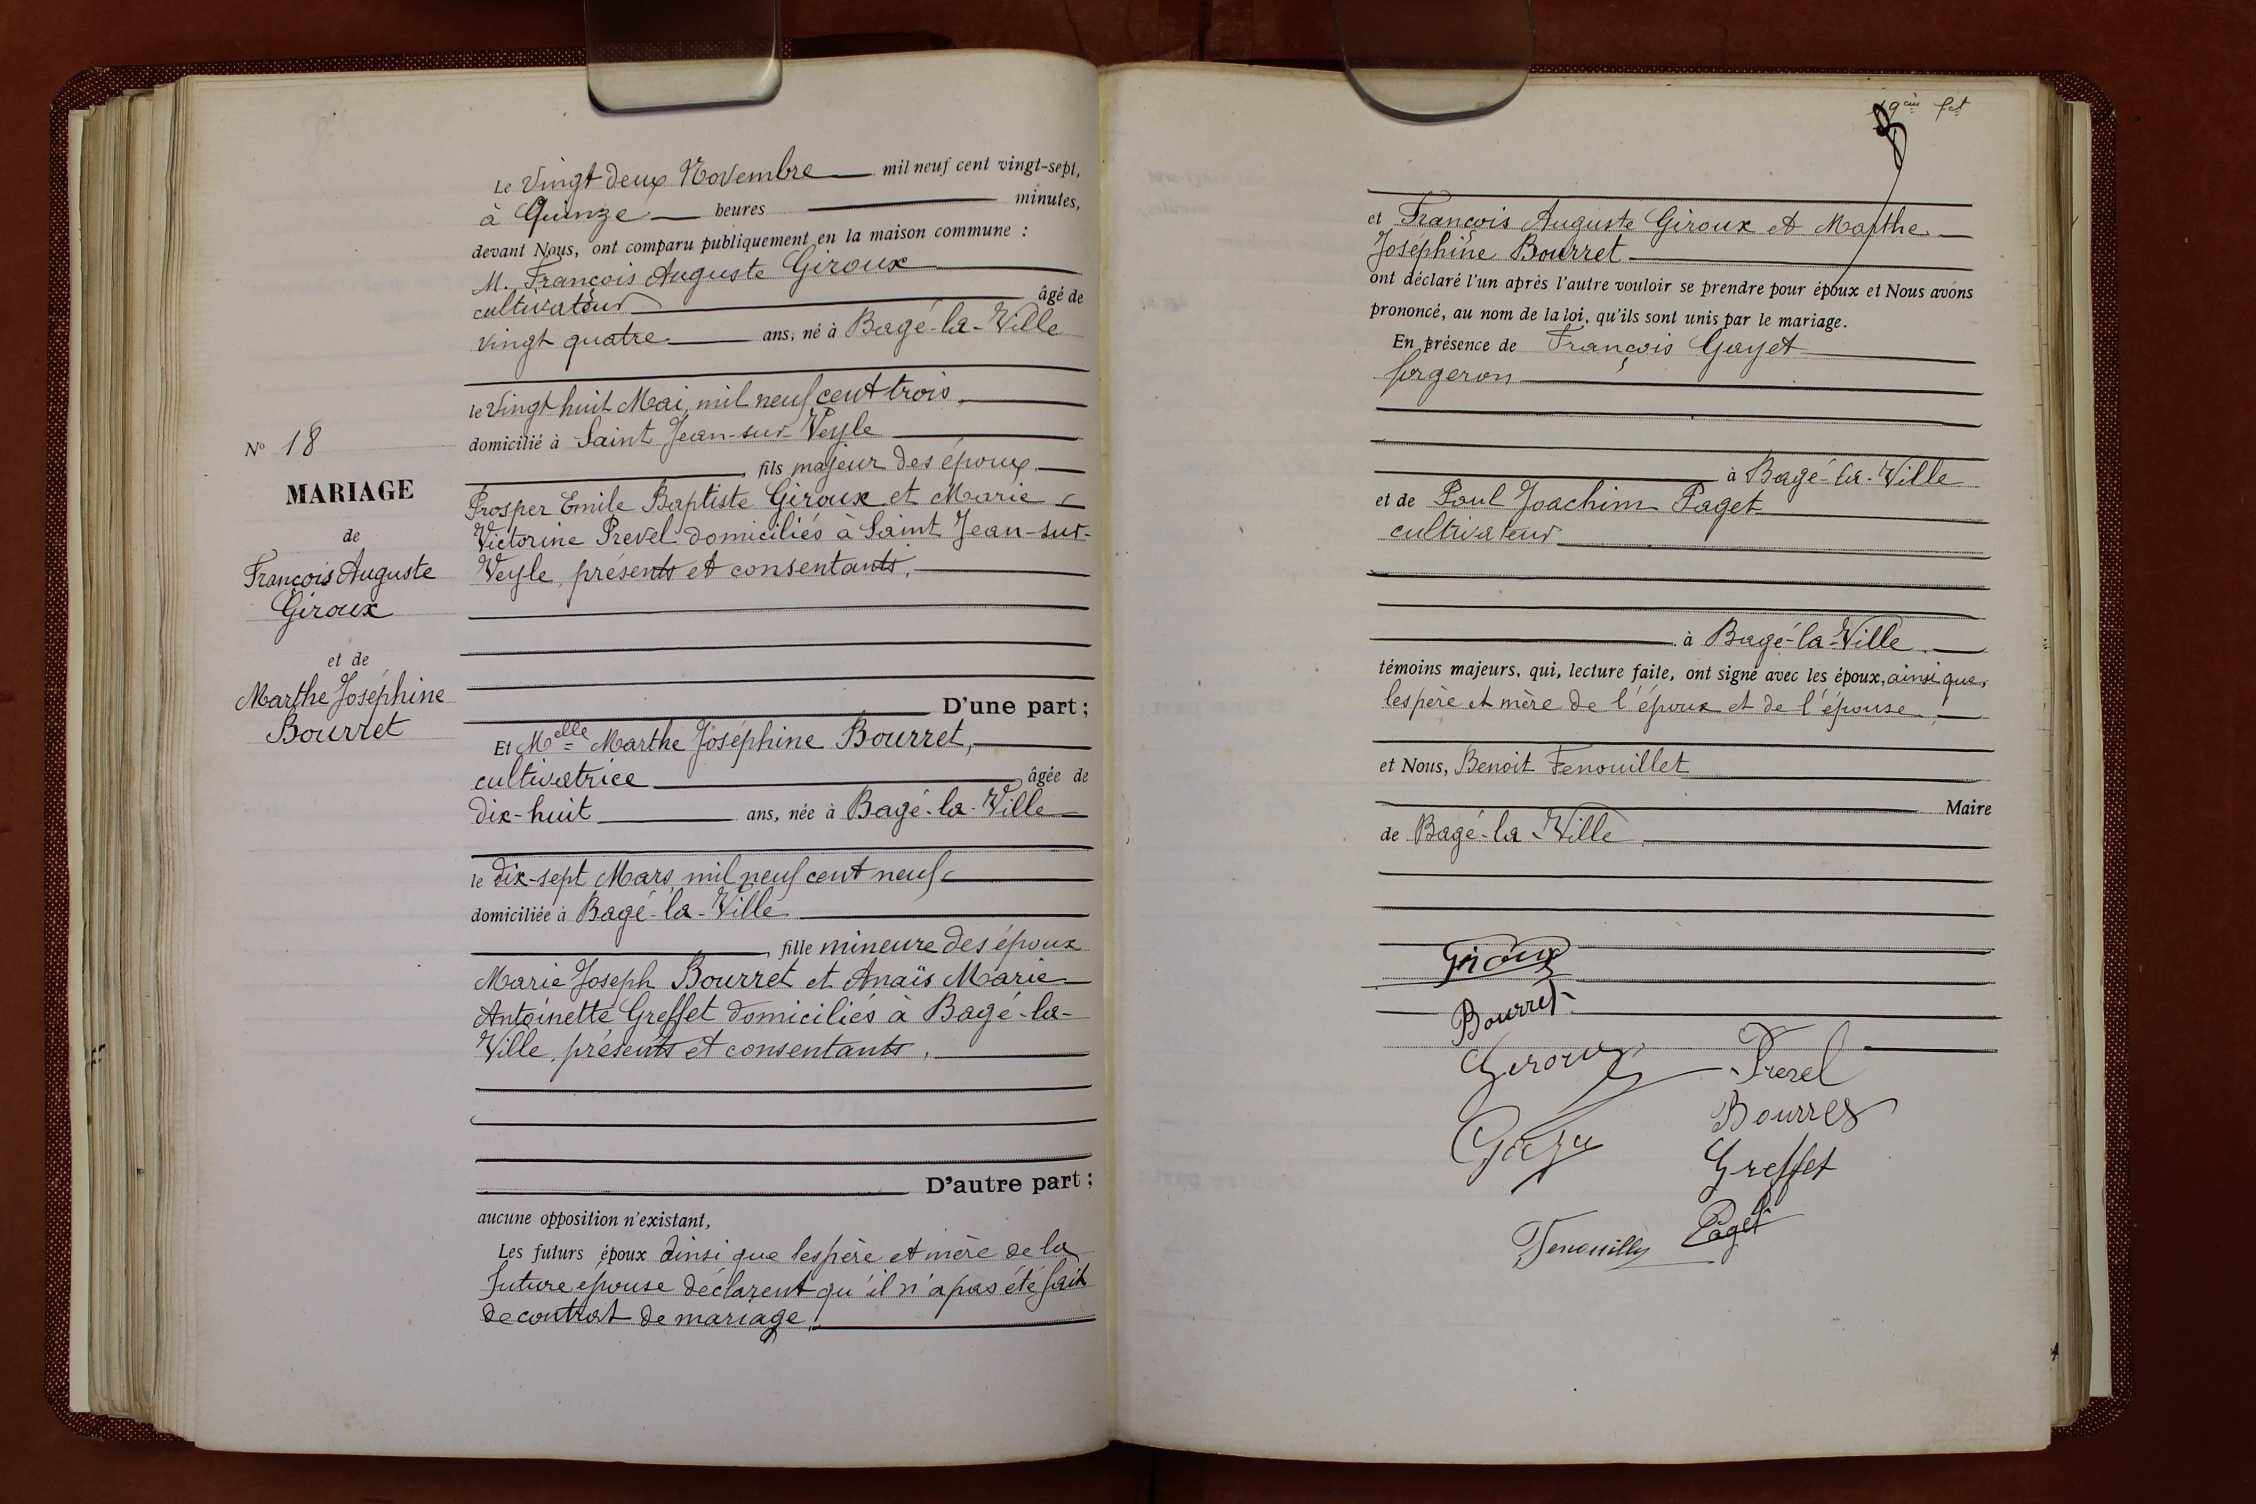 Le Vingt deux Novembre mil neuf cent vingt-sept,
à Quinze heures minutes,
devant Nous, ont comparu publiquement en la maison commune :
M. François Auguste Giroux
cultivateur âgé de
vingt quatre ans, né à Bagé-la-Ville
le Vingt huit Mai mil neuf cent trois,
domicilié à Saint Jean-sur-Veyle
, fils majeur des époux
Prosper Emile Baptiste Giroux et Marie
Victorine Prevel domiciliés à Saint Jean-sur-
Veyle, présents et consentants,
D'une part ;
No 18
MARIAGE
de
François Auguste
Giroux
et de
Marthe Joséphine
Bourret
Et Melle Marthe Joséphine Bourret,
cultivatrice âgée de
dix-huit ans, née à Bagé-la-Ville
le dix-sept Mars mil neuf cent neuf
domiciliée à Bagé-la-Ville
, fille mineure des époux
Marie Joseph Bourret et Anaïs Marie
Antoinette Greffet domiciliés à Bagé-la-
Ville, présents et consentants,
D'autre part ;
aucune opposition n'existant,
Les futurs époux ainsi que les père et mère de la
future épouse déclarent qu'il n'a pas été fait
de contrat de mariage.
19em fet
et François Auguste Giroux et Marthe
Joséphine Bourret
ont déclaré l'un après l'autre vouloir se prendre pour époux et Nous avons
prononcé, au nom de la loi, qu'ils sont unis par le mariage.
En présence de François Gayet
forgeron
à Bagé-la-Ville
et de Paul Joachim Paget
cultivateur
à Bagé-la-Ville
témoins majeurs, qui, lecture faite, ont signé avec les époux, ainsi que,
les père et mère de l'époux et de l'épouse,
et Nous, Benoit Fenouillet
Maire
de Bagé-la-Ville
Giroux
Bourret
Giroux Prevel
Bourret
Gayet Greffet
Fenouillet Paget